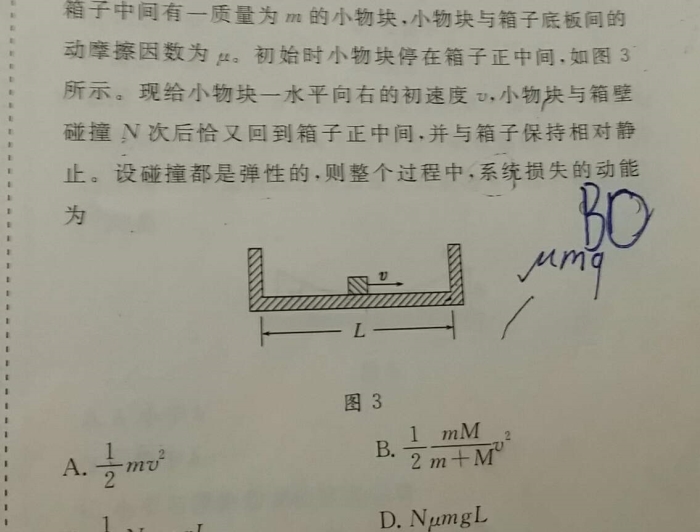 箱子中间有一质量为 m 的小物块,小物块与箱子底板间的
动摩擦因数为 μ。初始时小物块停在箱子正中间,如图 3
所示。现给小物块一水平向右的初速度 v,小物块与箱壁
碰撞 N 次后恰又回到箱子正中间,并与箱子保持相对静
止。设碰撞都是弹性的,则整个过程中,系统损失的动能
为
BD
μmg
v
L
图 3
A. \frac{1}{2}mv^2
B. \frac{1}{2}\frac{mM}{m+M}v^2
D. NμmgL